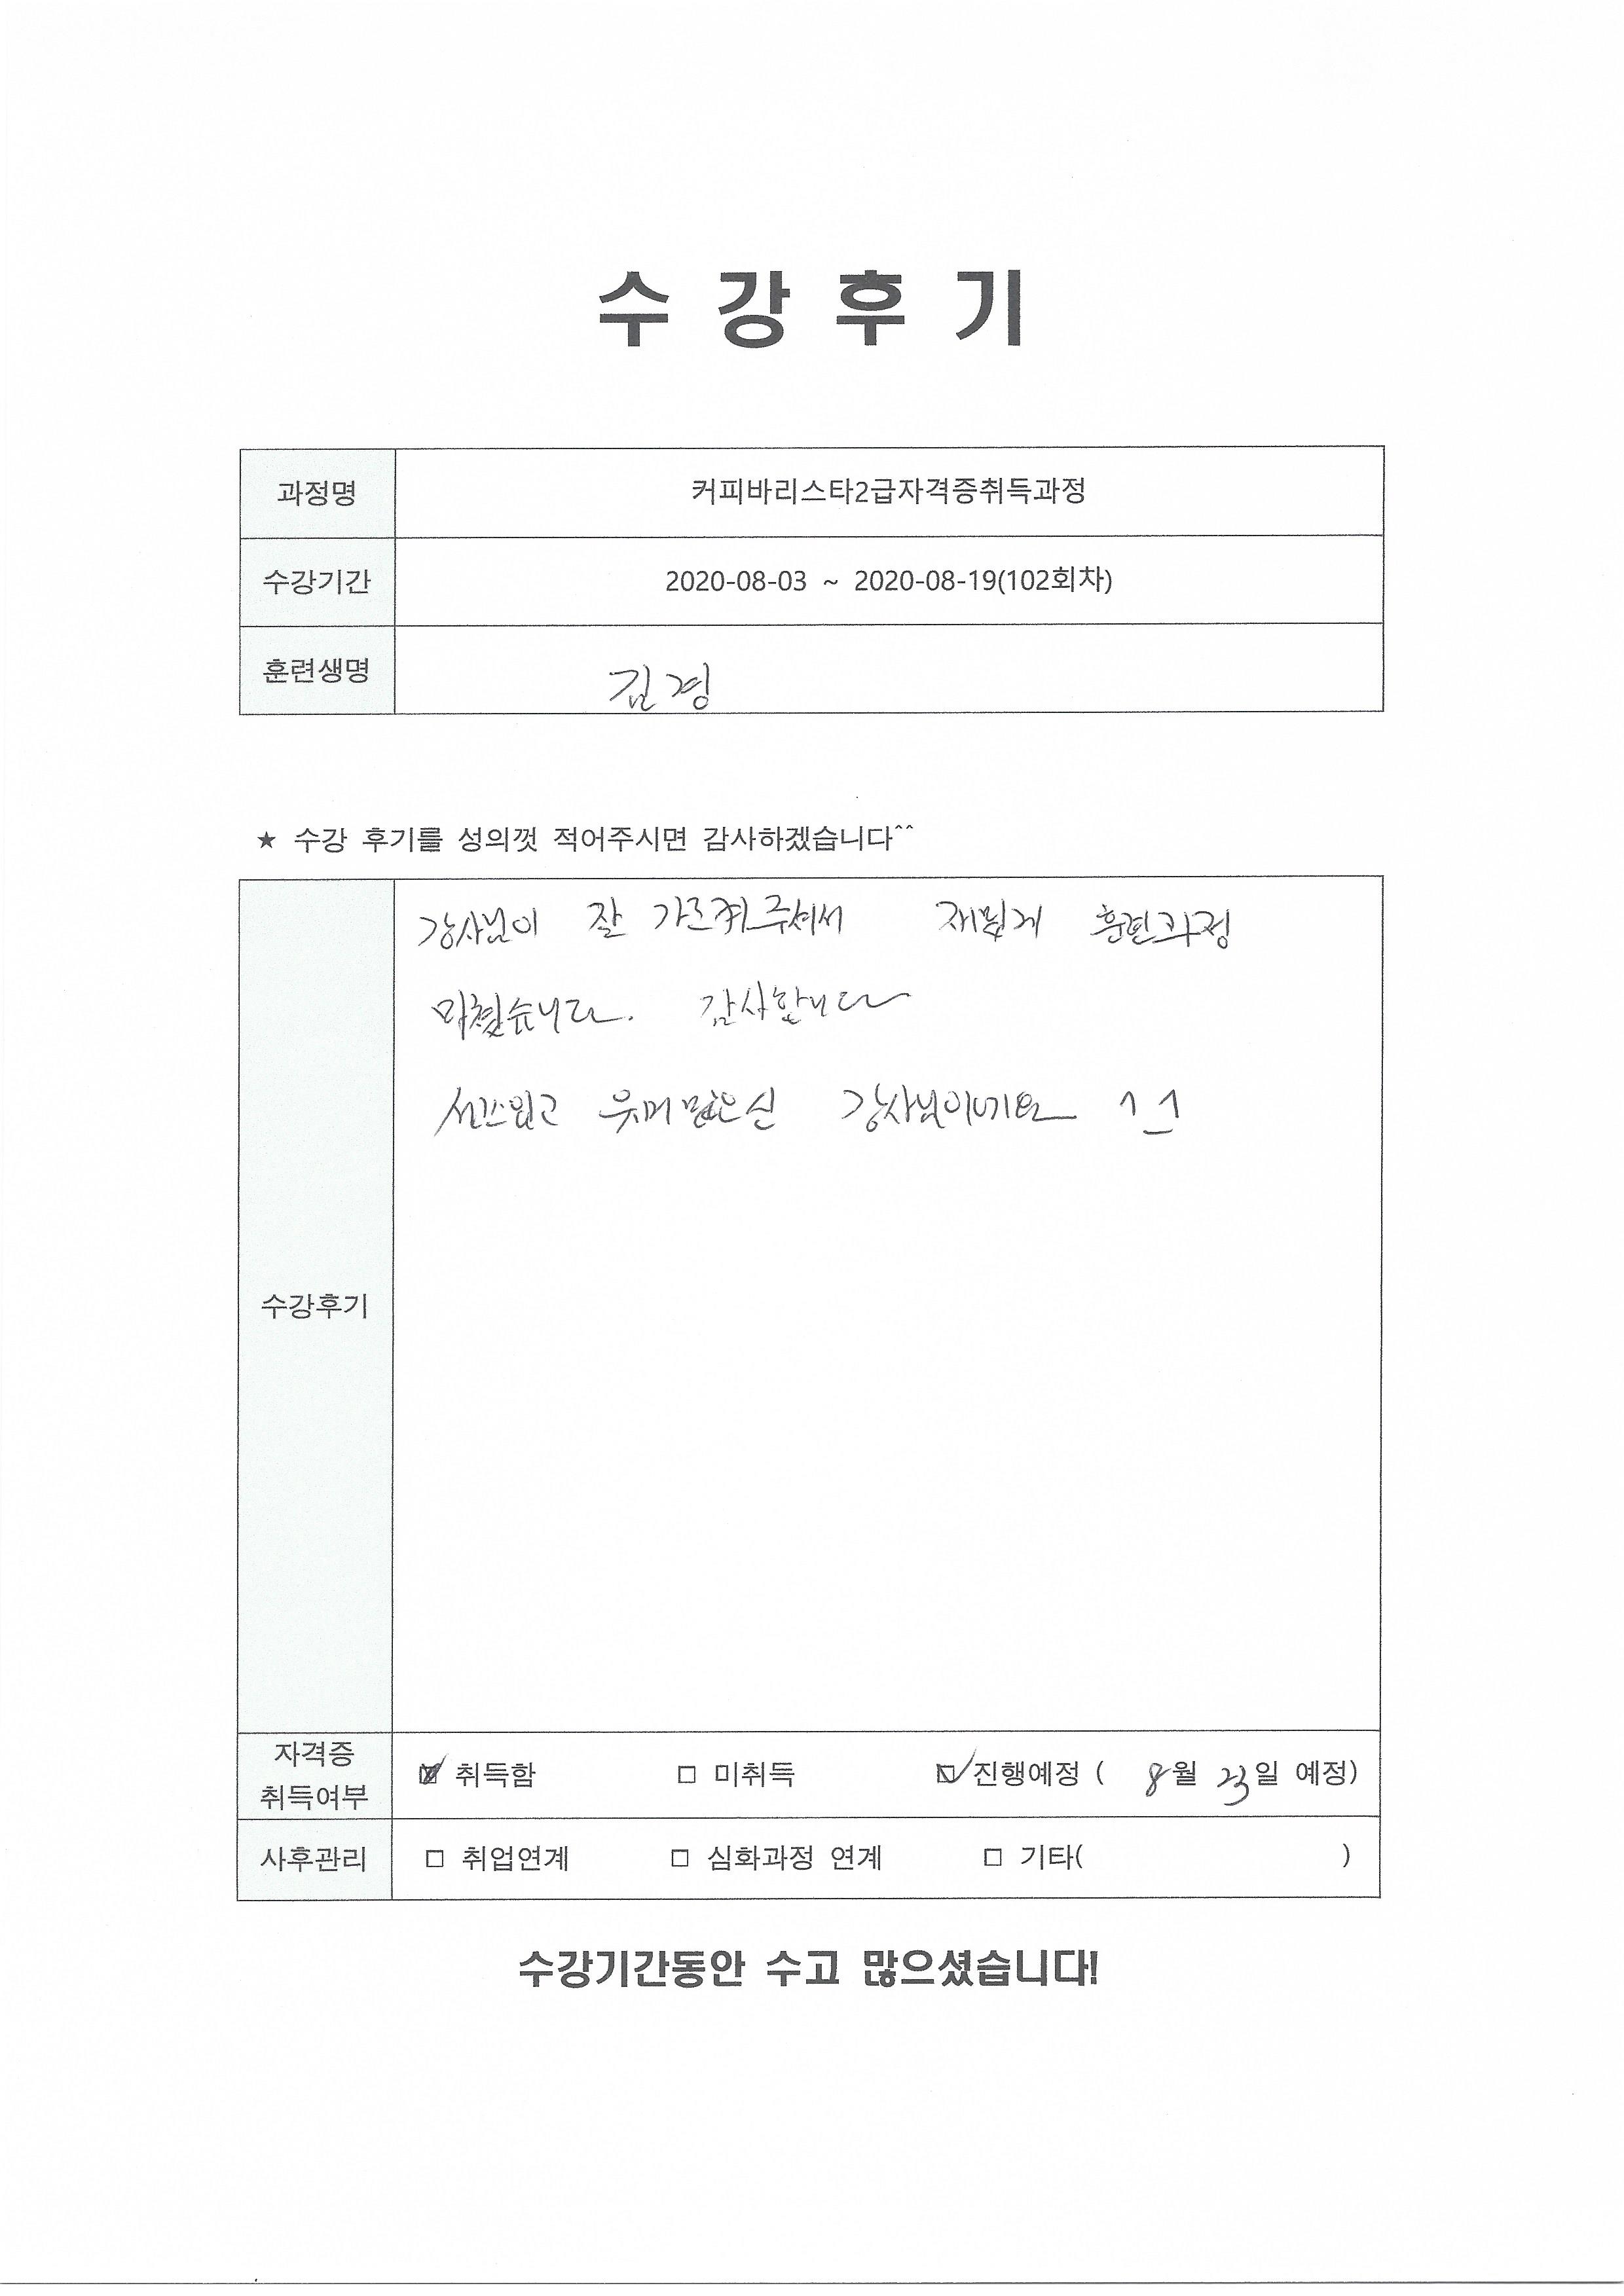 수 강 후 기
과정명 커피바리스타2급자격증취득과정
수강기간 2020-08-03 ~ 2020-08-19(102회차)
훈련생명 김경
★ 수강 후기를 성의껏 적어주시면 감사하겠습니다^^
수강후기
강사님이 잘 가르쳐주셔서 재밌게 훈련과정
마쳤습니다. 감사합니다
센스있고 유머 많으신 강사님이네요 ^_^
자격증
취득여부
☑ 취득함 □ 미취득 ☑ 진행예정 ( 8월 23일 예정)
사후관리 □ 취업연계 □ 심화과정 연계 □ 기타( )
수강기간동안 수고 많으셨습니다!